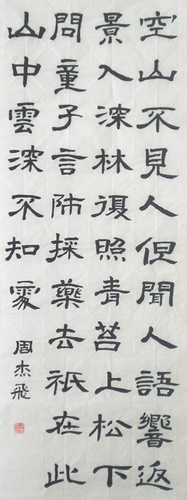 空山不見人但聞人語響返
景入深林復照青苔上松下
問童子言師採藥去祇在此
山中雲深不知處
周杰飛